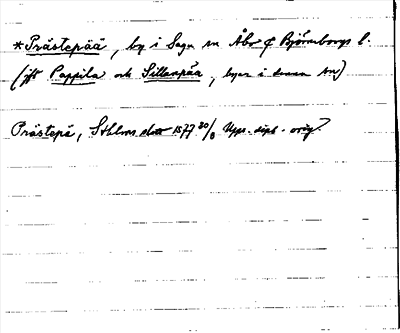 *Prästepää, by i Sagu sn Åbo o Björneborgs l.
(jft Pappila och Sillanpää, byar i denna sn)
Prästepä, Sthlms slott 1577 20/8 Upps. dipl. orig.